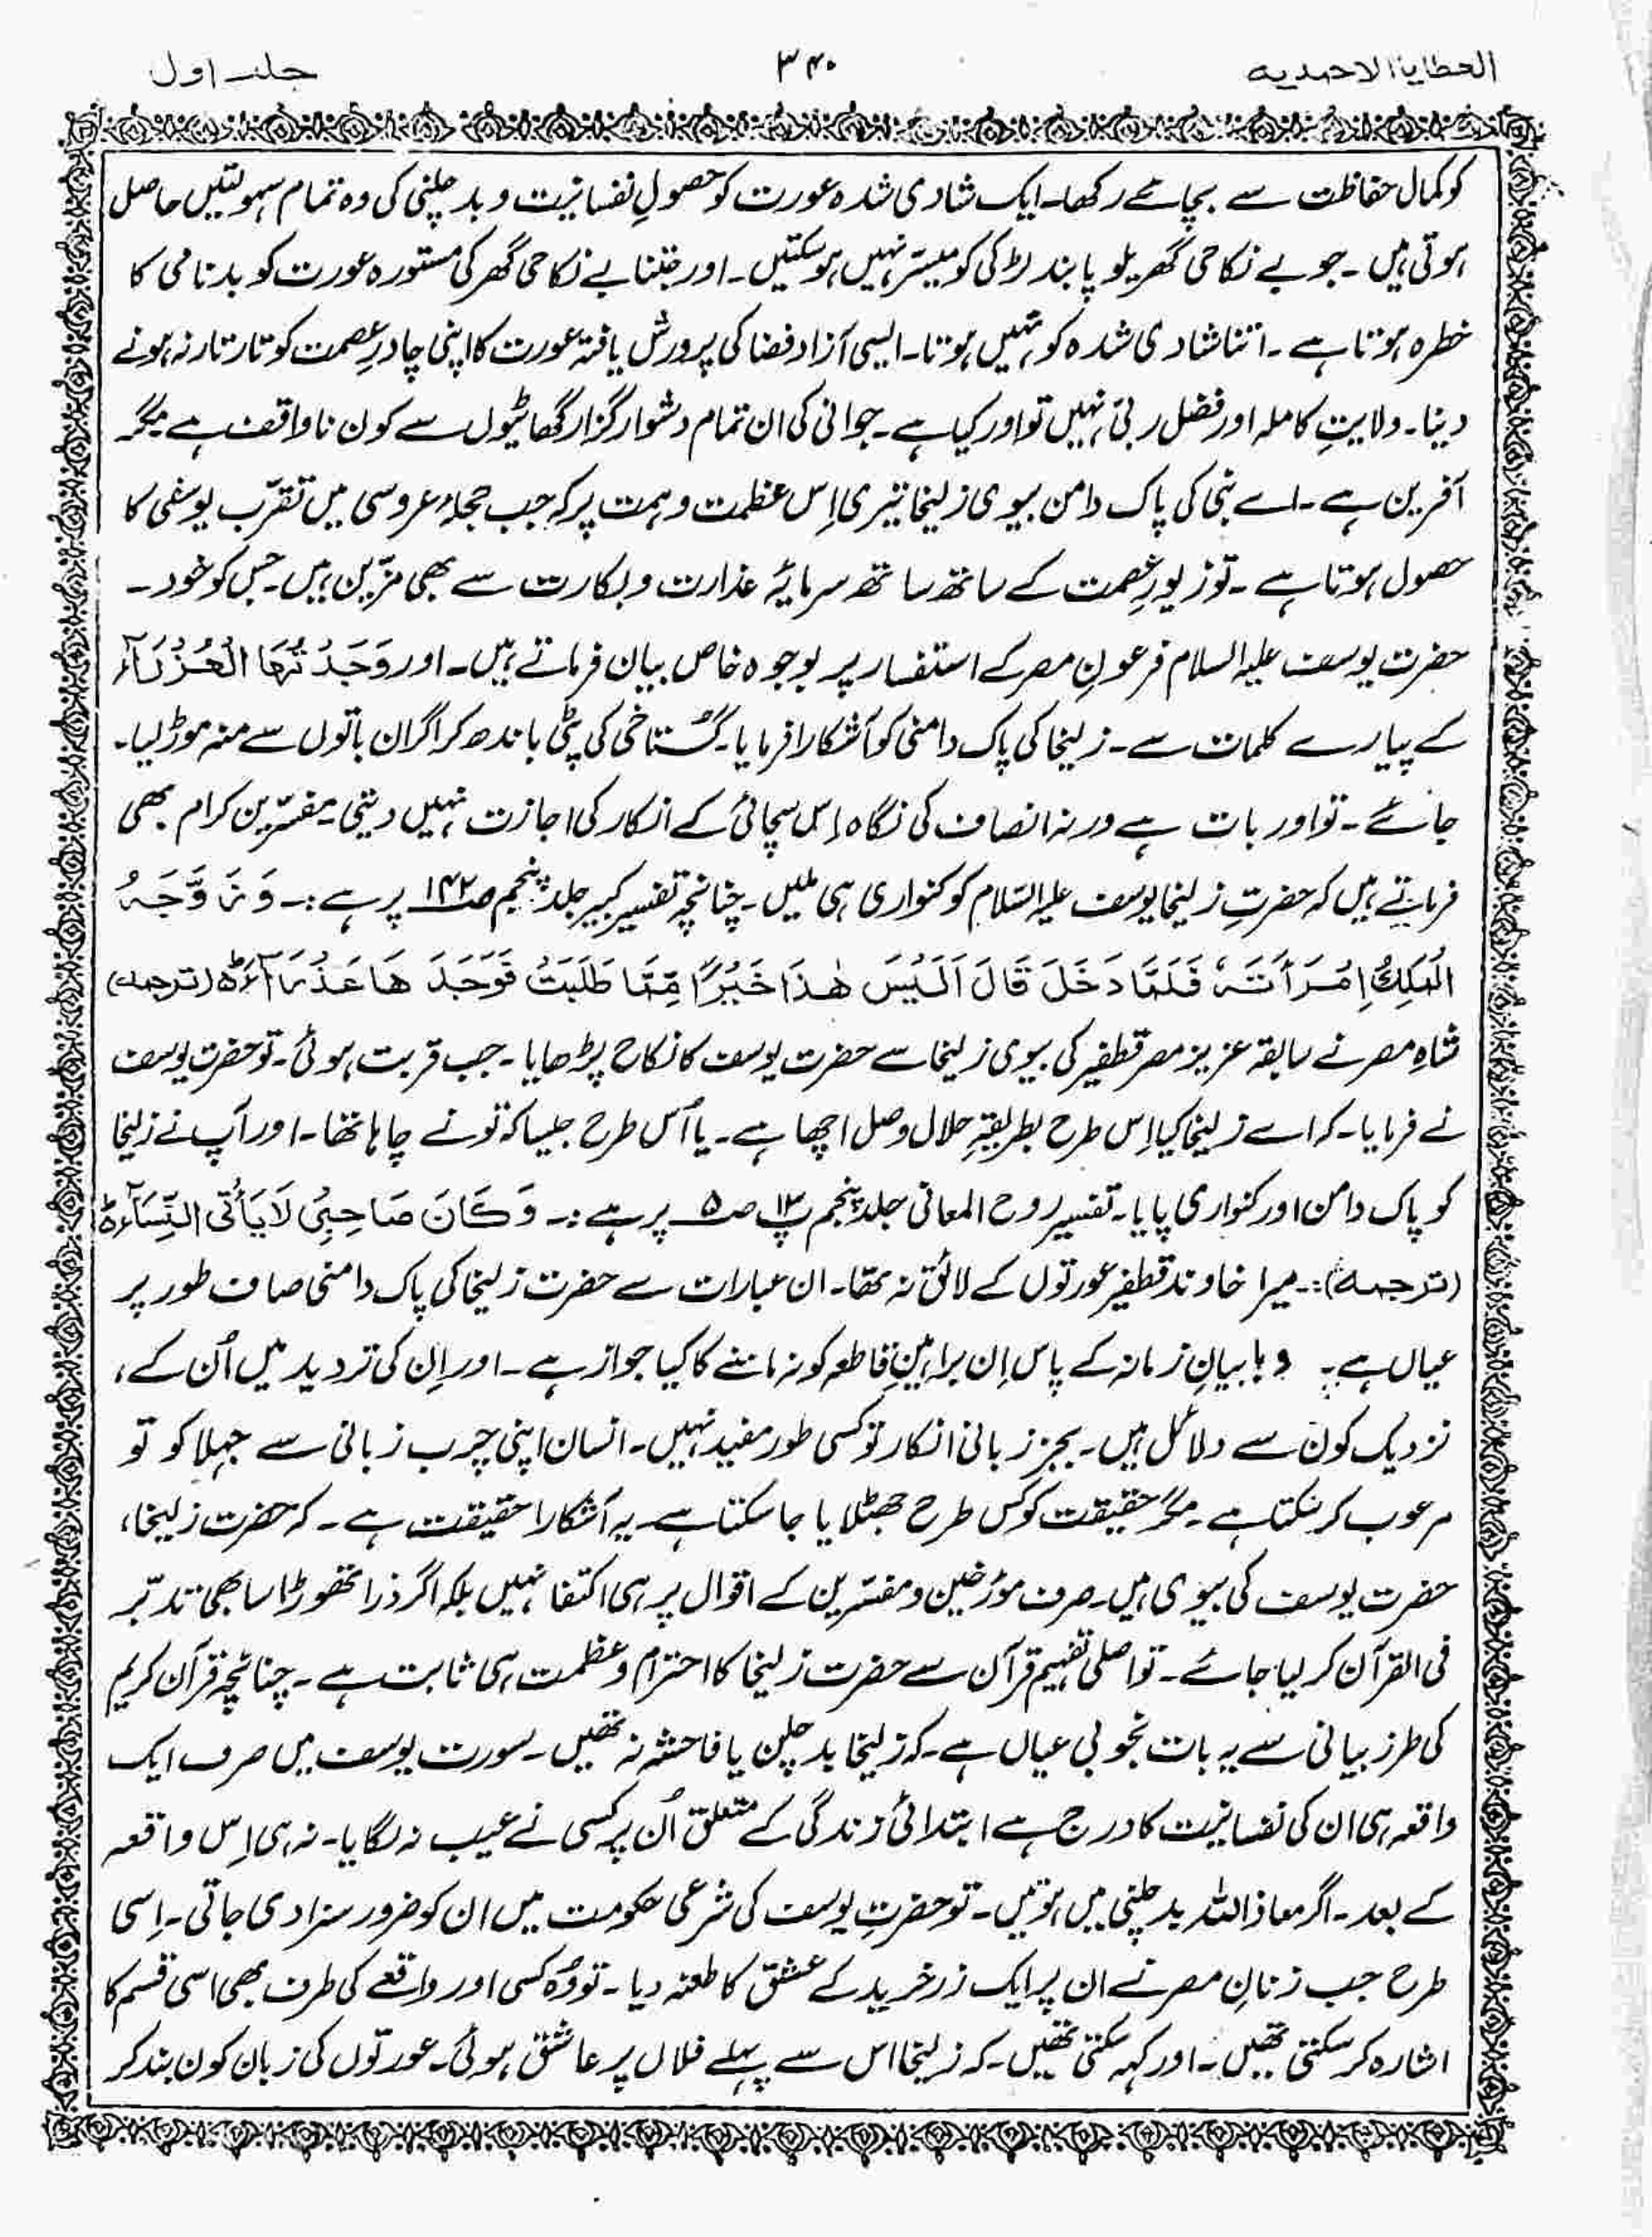 العطایا الاحمدیہ ۳۴۰ جلد اول
کو کمال حفاظت سے بچائے رکھا۔ ایک شادی شدہ عورت کو حصولِ نفسانیت و بدچلنی کی وہ تمام سہولتیں حاصل
ہوتی ہیں۔ جو بے نکاحی گھریلو پابند لڑکی کو میسّر نہیں ہو سکتیں۔ اور جتنا بے نکاحی گھر کی مستورہ عورت کو بدنامی کا
خطرہ ہوتا ہے۔ اتنا شادی شدہ کو نہیں ہوتا۔ ایسی آزاد فضا کی پرورش یافتہ عورت کا اپنی چادرِ عصمت کو تار تار نہ ہونے
دینا۔ ولایتِ کاملہ اور فضل ربی نہیں تو اور کیا ہے۔ جوانی کی ان تمام دشوار گزار گھاٹیوں سے کون ناواقف ہے مگر
آفرین ہے۔ اے نبی کی پاک دامن بیوی زلیخا تیری اِس عظمت و ہمت پر کہ جب حجلۂ عروسی میں تقرّب یوسفی کا
حصول ہوتا ہے۔ تو زیورِ عصمت کے ساتھ ساتھ سرمایۂ عذارت و بکارت سے بھی مزّین ہیں۔ جس کو خود۔
حضرت یوسف علیہ السلام فرعونِ مصر کے استفسار پر بوجوہ خاص بیان فرماتے ہیں۔ اور وَجَدْتُهَا الْعُذْرَآءَ
کے پیارے کلمات سے۔ زلیخا کی پاک دامنی کو آشکارا فرمایا۔ گُستاخی کی پٹی باندھ کر اگر ان باتوں سے منہ موڑ لیا۔
جائے۔ تو اور بات ہے ورنہ انصاف کی نگاہ اِس سچائی کے انکار کی اجازت نہیں دیتی۔ مفسّرین کرام بھی
فرماتے ہیں کہ حضرتِ زلیخا یوسف علیہ السّلام کو کنواری ہی ملیں۔ چنانچہ تفسیر کبیر جلد پنجم صـ۱۴۲ پر ہے :۔ وَ زَوَّجَهُ
الْمَلِكُ اِمْرَأَتَهٗ فَلَمَّا دَخَلَ قَالَ اَلَيْسَ هٰذَا خَيْرًا مِّمَّا طَلَبَتُ فَوَجَدَ هَا عَذْرَآءَ ہ (ترجمہ)
شاہِ مصر نے سابقہ عزیز مصر قطفیر کی بیوی زلیخا سے حضرت یوسف کا نکاح پڑھایا۔ جب قربت ہوئی۔ تو حضرت یوسف
نے فرمایا۔ کہ اے زلیخا کیا اِس طرح بطریقۂ حلال وصل اچھا ہے۔ یا اُس طرح جیسا کہ تو نے چاہا تھا۔ اور آپ نے زلیخا
کو پاک دامن اور کنواری پایا۔ تفسیر روح المعانی جلد پنجم پ ۱۳ صـ۵ پر ہے :۔ وَ كَانَ صَاحِبِيْ لَا يَأْتِي النِّسَآءَ ہ
(ترجمہ) :۔ میرا خاوند قطفیر عورتوں کے لائق نہ تھا۔ ان عبارات سے حضرت زلیخا کی پاک دامنی صاف طور پر
عیاں ہے۔ وہابیانِ زمانہ کے پاس اِن براہینِ قاطعہ کو نہ ماننے کا کیا جواز ہے۔ اور اِن کی تردید میں اُن کے،
نزدیک کون سے دلائل ہیں۔ بجز زبانی انکار تو کسی طور مفید نہیں۔ انسان اپنی چرب زبانی سے جہلا کو تو
مرعوب کر سکتا ہے۔ مگر حقیقت کو کس طرح جھٹلایا جا سکتا ہے۔ یہ آشکارا حقیقت ہے۔ کہ حضرت زلیخا،
حضرت یوسف کی بیوی ہیں۔ صرف مورخین و مفسّرین کے اقوال پر ہی اکتفا نہیں بلکہ اگر ذرا تھوڑا سا بھی تدبّر
فی القرآن کر لیا جائے۔ تو اصلی تفہیم قرآن سے حضرت زلیخا کا احترام و عظمت ہی ثابت ہے۔ چنانچہ قرآن کریم
کی طرز بیانی سے یہ بات بخوبی عیاں ہے۔ کہ زلیخا بدچلن یا فاحشہ نہ تھیں۔ سورت یوسف میں صرف ایک
واقعہ ہی ان کی نفسانیت کا درج ہے ابتدائی زندگی کے متعلق اُن پر کسی نے عیب نہ لگایا۔ نہ ہی اِس واقعہ
کے بعد۔ اگر معاذ اللہ بدچلنی میں ہوتیں۔ تو حضرتِ یوسف کی شرعی حکومت میں ان کو ضرور سزا دی جاتی۔ اِسی
طرح جب زنانِ مصر نے ان پر ایک زرخرید کے عشق کا طعنہ دیا۔ تو وُہ کسی اور واقعے کی طرف بھی اسی قسم کا
اشارہ کر سکتی تھیں۔ اور کہہ سکتی تھیں۔ کہ زلیخا اس سے پہلے فلاں پر عاشق ہوئی۔ عورتوں کی زبان کون بند کر